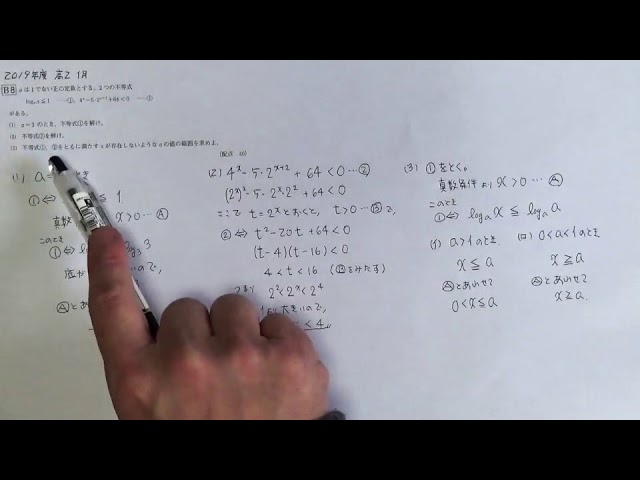 2019年度 高2 1月
B8 aは1でない正の定数とする。2つの不等式
logₐx≦1 ……①, 4ˣ-5·2ˣ⁺²+64<0 ……②
がある。
(1) a=3のとき、不等式①を解け。
(2) 不等式②を解け。
(3) 不等式①、②をともに満たすxが存在しないようなaの値の範囲を求めよ。
(配点 40)
(1) a= とき
①⇔ ≦ 1
真数 x>0 … Ⓐ
このとき
①⇔ 3
底が ので,
Ⓐとあわ
(2) 4ˣ-5·2ˣ⁺²+64<0 …②
(2ˣ)²-5·2ˣ·2²+64<0
ここで t=2ˣとおくと, t>0…Ⓑで,
②⇔ t²-20t+64<0
(t-4)(t-16)<0
4<t<16 (Ⓑをみたす)
2²<2ˣ<2⁴
大きいので,
<4
(3) ①をとく。
真数条件より x>0 … Ⓐ
このとき
①⇔ logₐx ≦ logₐa
(イ) a>1のとき
x≦a
Ⓐとあわせて
0<x≦a
(ロ) 0<a<1のとき
x≧a
Ⓐとあわせて
x≧a.